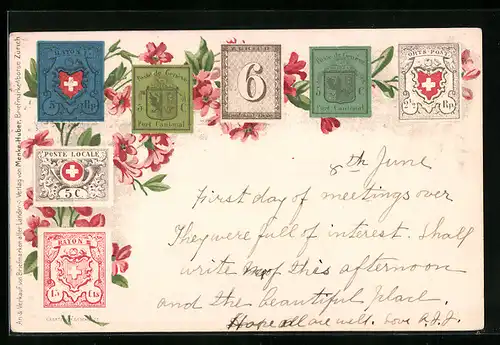 An- & Verkauf von Briefmarken aller Länder. Verlag von Menke-Huber, Briefmarkenbörse Zürich
RAYON I.
5 Rp.
Poste de Genève
5 C
Port Cantonal
ZÜRICH
6
Poste de Genève
5 C
Port Cantonal
ORTS-POST
2½ Rp.
POSTE LOCALE
5 C.
RAYON III
15 Cts
8th June
First day of meetings over
They were full of interest. Shall
write this afternoon
and the beautiful place.
Hope all are well. Love